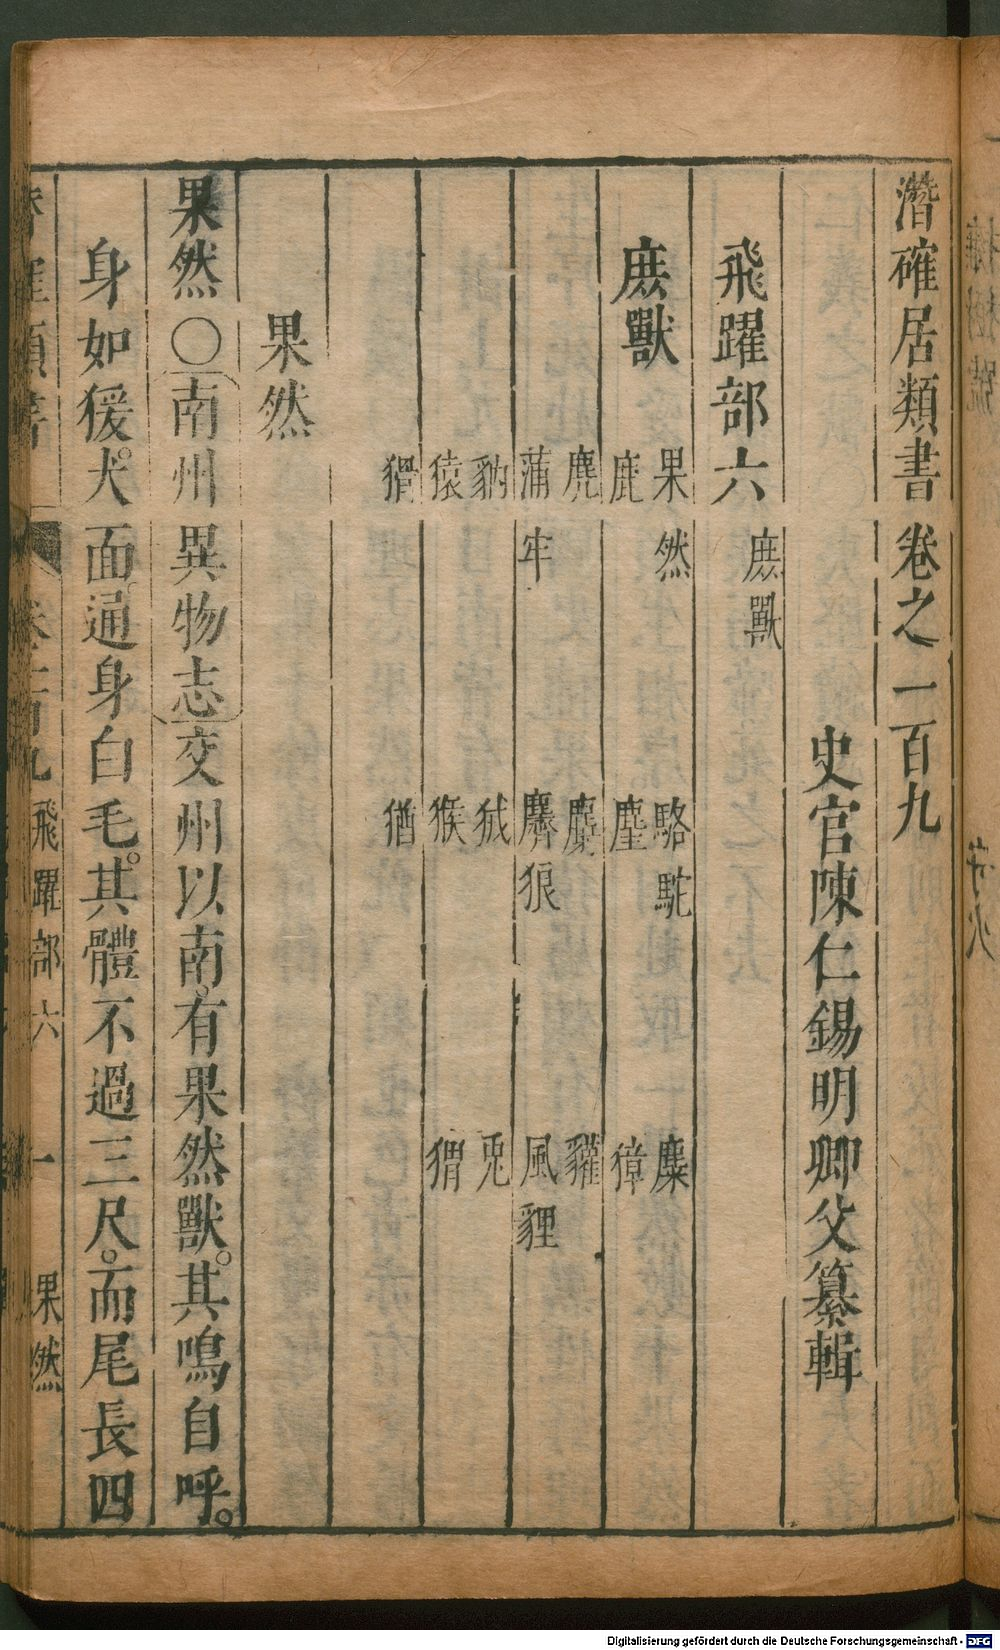 潛確居類書卷之一百九
史官陳仁錫明卿父纂輯
飛躍部六 庶獸
庶獸
果然 駱駝 麋
鹿 麈 獐
麂 麢 貛
蒲牢 麝狼 風貍
豽 狨 兎
猿 猴 猬
猾 猶
果然
果然〇南州異物志交州以南。有果然獸。其鳴自呼。
身如猨。犬面。通身白毛。其體不過三尺。而尾長四
卷一百九 飛躍部六 一 果然
Digitalisierung gefördert durch die Deutsche Forschungsgemeinschaft - DFG